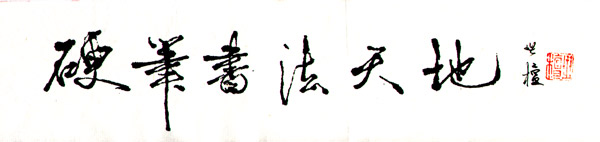 硬筆書法天地
世檀